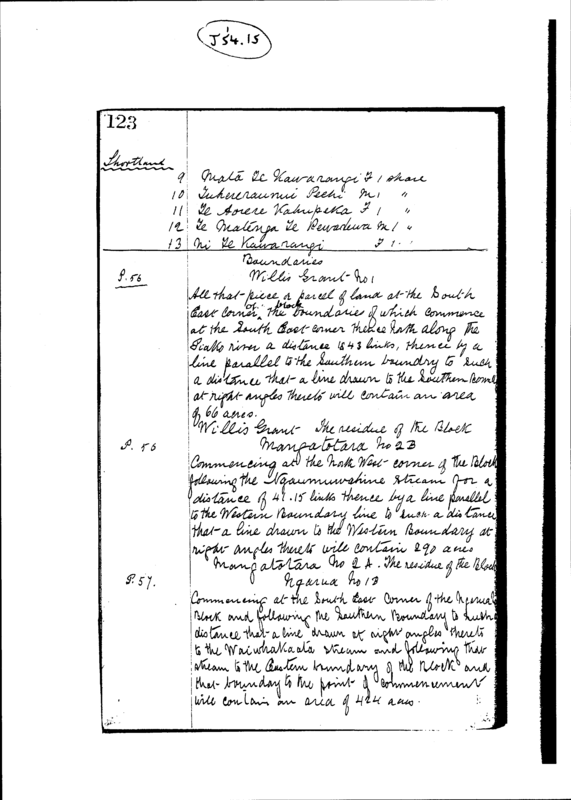 J54.15
123
Shortland
9 Mata Te Kawarangi F 1 share
10 Tukeraumui Peehi M 1 "
11 Te Aorere Kahupeka F 1 "
12 Te Matenga Te M 1 "
13 Mi Te Kawarangi F 1
Boundaries
P. 56 Willis Grant No 1
All that piece or parcel of land at the South
East corner of the block the boundaries of which commence
at the South East corner thence North along the
Piako river a distance 1843 links, thence by a
line parallel to the Southern boundry to such
a distance that a line drawn to the Southern
at right angles thereto will contain an area
of 66 acres.
Willis Grant The residue of the Block
P. 56 Mangatotara No 2B
Commencing at the North West corner of the Block
following the stream for a
distance of 41.15 links thence by a line parallel
to the Western Boundary line to such a distance
that a line drawn to the Western Boundary at
right angles thereto will contain 290 acres
Mangatotara No 2A. The residue of the Block
P. 57. Ngarua No 1B
Commencing at the South East Corner of the Ngarua
Block and following the Southern Boundary to such
distance that a line drawn at right angles thereto
to the Waiwhakaata stream and following that
stream to the Eastern boundary of the Block and
that bounday to the point of commencement
will contain an area of 424 acres.